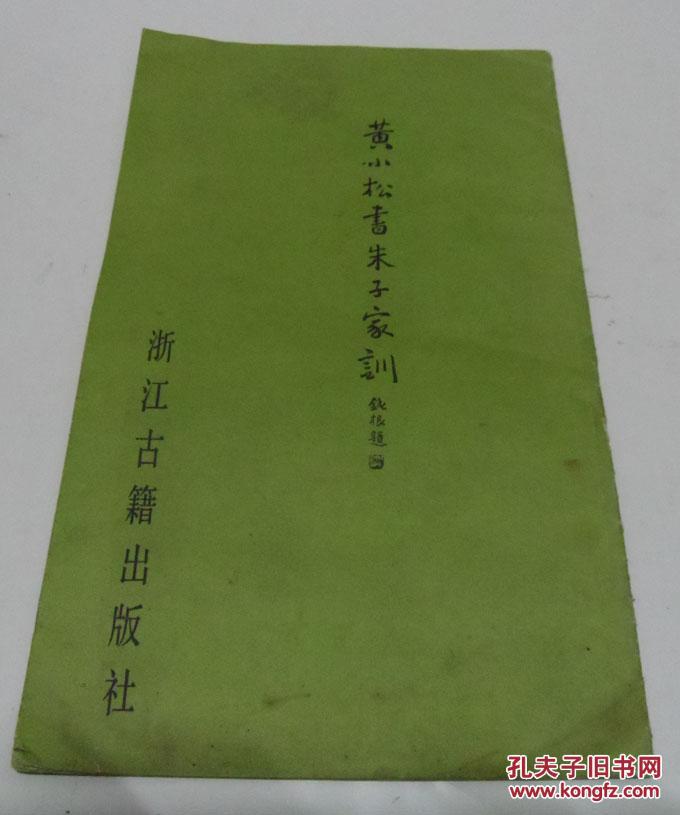 黄小松書朱子家訓
鈍根題
浙江古籍出版社
孔夫子旧书网
www.kongfz.com